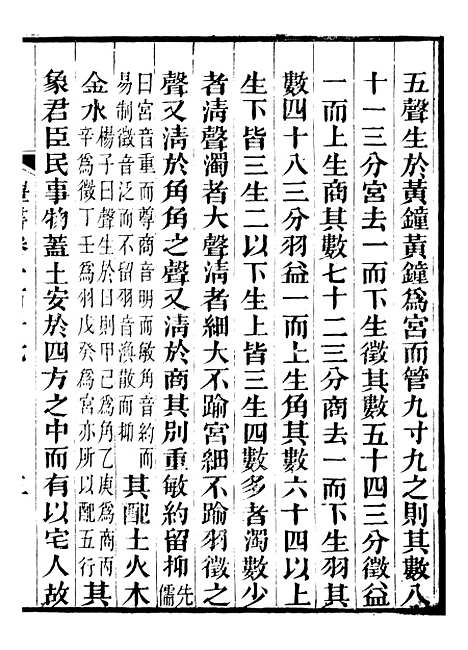 五聲生於黃鐘黃鐘爲宮而管九寸九之則其數八
十一三分宮去一而下生徵其數五十四三分徵益
一而上生商其數七十二三分商去一而下生羽其
數四十八三分羽益一而上生角其數六十四以上
生下皆三生二以下生上皆三生四數多者濁數少
者淸聲濁者大聲淸者細大不踰宮細不踰羽徵之
聲又淸於角角之聲又淸於商其別重敏約留抑先儒
曰宮音重而尊商音明而敏角音約而
易制徵音泛而不留羽音渙散而抑
其配土火木
金水
楊子曰聲生於日則甲己爲角乙庚爲商丙
辛爲徵丁壬爲羽戊癸爲宮亦所以配五行
其
象君臣民事物蓋土安於四方之中而有以宅人故
二